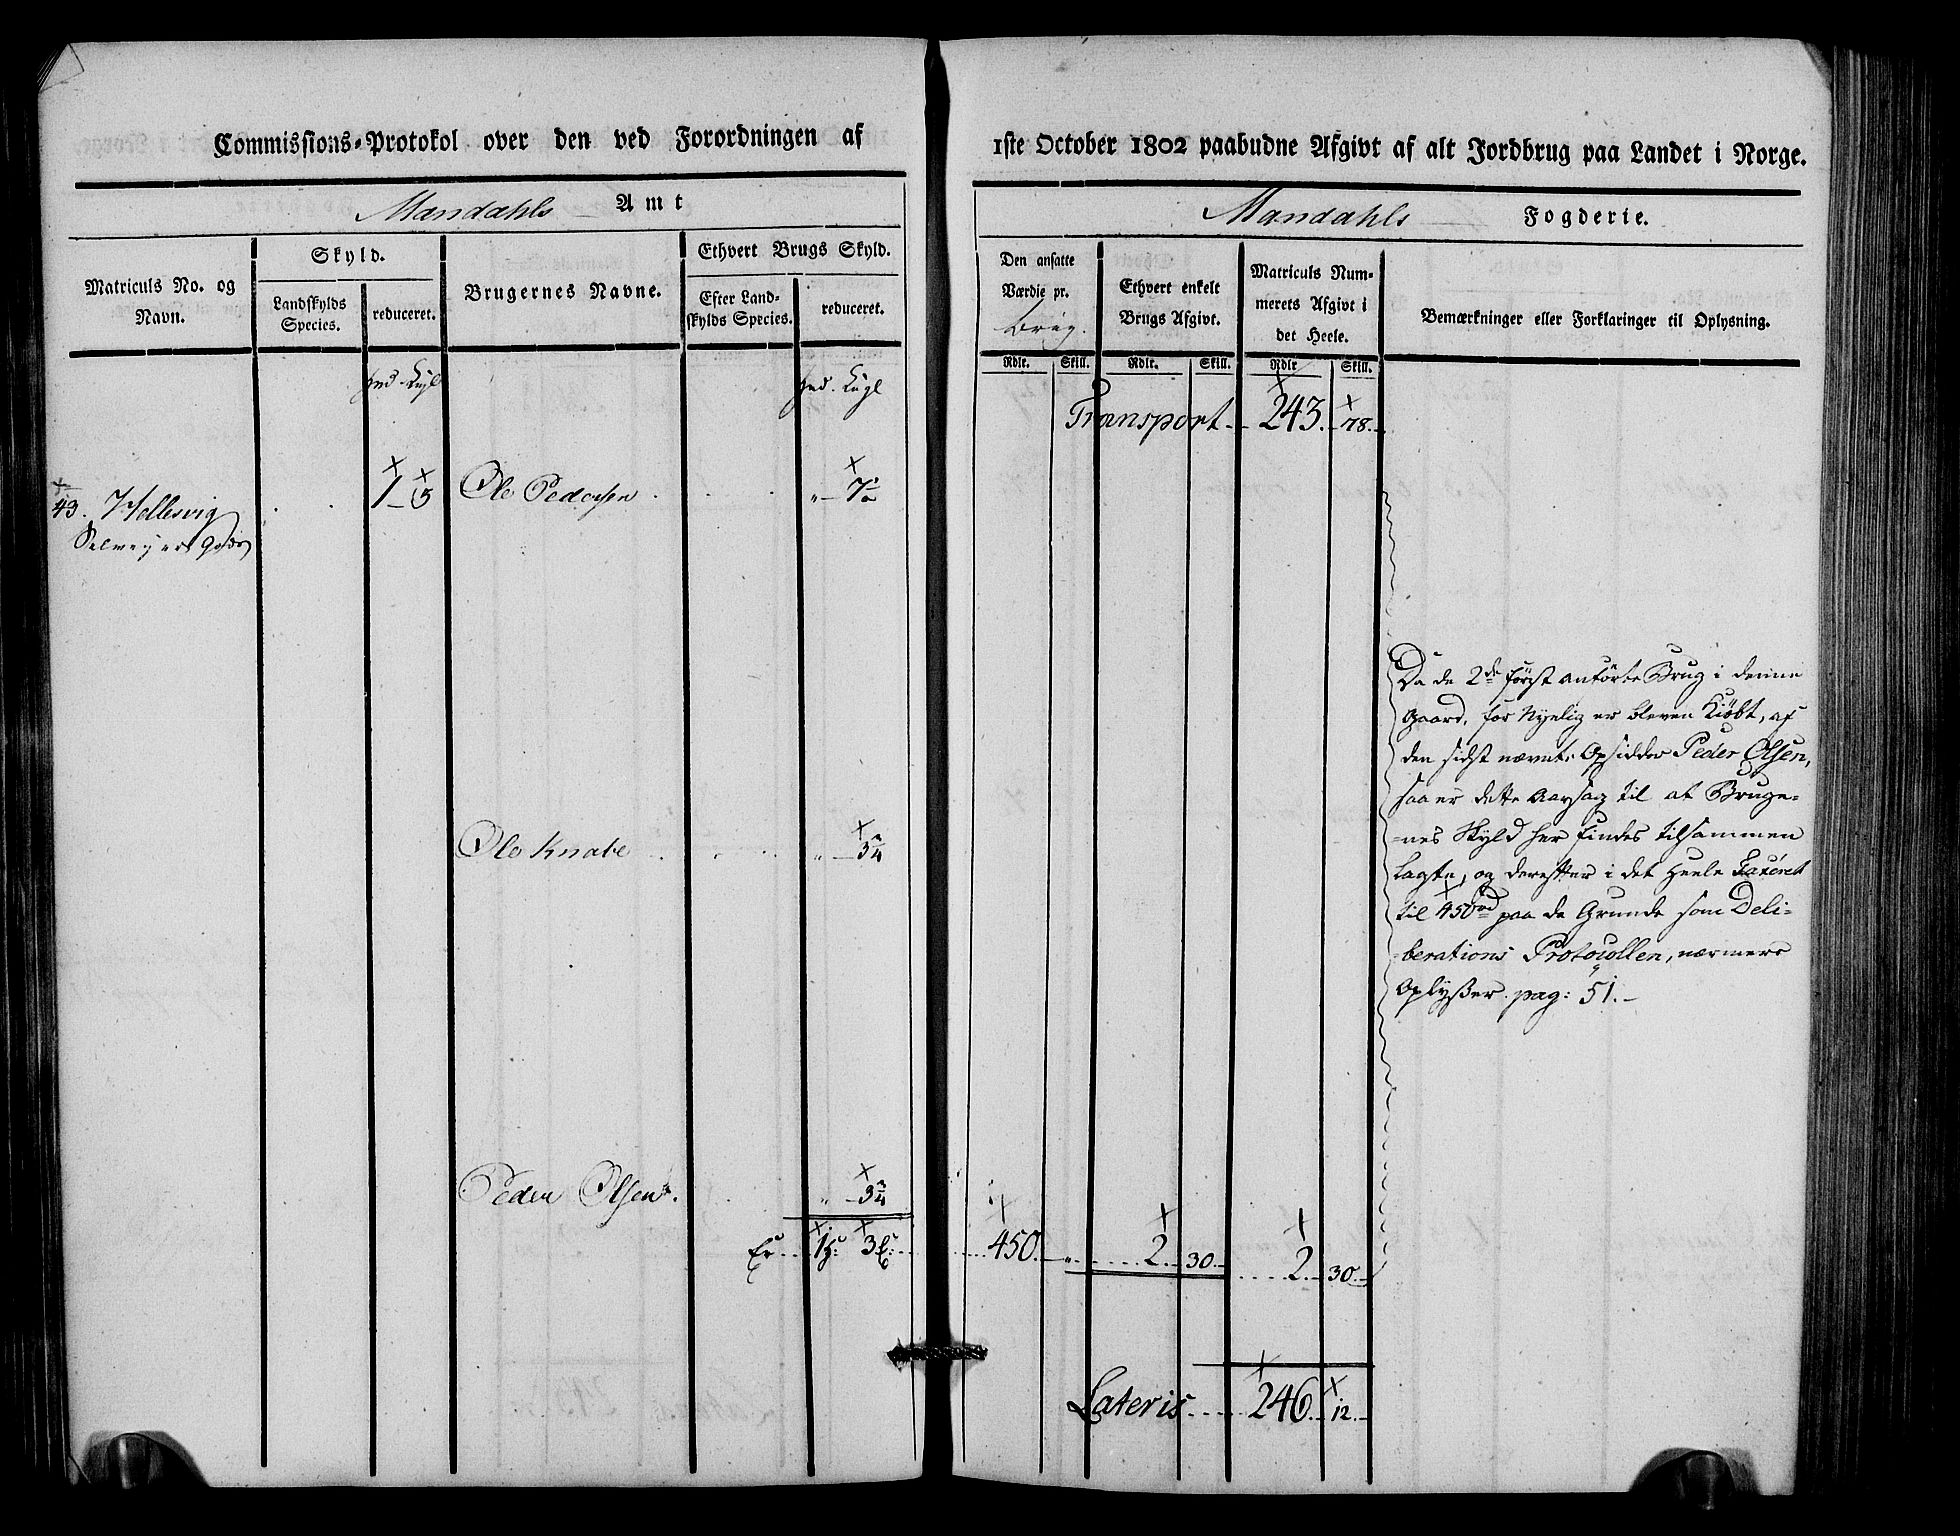 Commissions-Protokol over den ved Forordningen af
Mandahls Amt
Matriculs No. og Navn.
Skyld.
Landskylds Species.
reduceret.
Brugernes Navne.
Ethvert Brugs Skyld.
Efter Landskylds Species.
reduceret.
43. Hellesvig
1 - 5
Ole Pedersen . . . „ - 7½
Ole Knabe . . . „ - 3¾
Peder Olsen . „ - 3¾
Er 1 h: 3 k:
1ste October 1802 paabudne Afgivt af alt Jordbrug paa Landet i Norge.
Mandahls Fogderie.
Den ansatte Værdie pr.
Brug.
Ethvert enkelt Brugs Afgivt.
Matriculs Nummerets Afgivt i det Heele.
Bemærkninger eller Forklaringer til Oplysning.
Rdlr. Skill. Rdlr. Skill. Rdlr Skill.
Transport - 243. - 78. -
Da de 2de først anførte Brug i denne
Gaard, for Nyelig er bleven Kiøbt, af
den sidst nævnte Opsidder Peder Olsen,
saa er dette Aarsag til at Bruge-
-nes Skyld her findes tilsammen
Lagte, og derefter i det Heele Taxeret
til 450 rd paa de Grunde som Deli-
berations Protocollen, nærmere
Oplyser. pag: 51. -
450. - „ 2. 30. - 2. - 30. -
Lateris 246. - 12. -